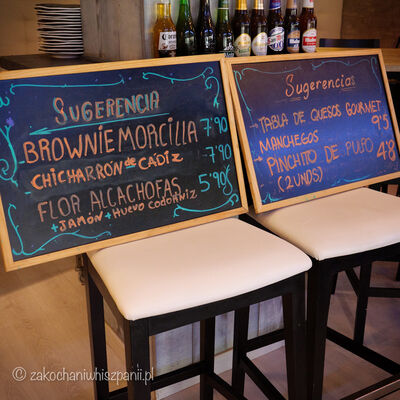 SUGERENCIA
BROWNIE MORCILLA 7'90
CHICHARRÓN de CÁDIZ -7'90
FLOR ALCACHOFAS 5'90€
+JAMÓN + HUEVO CODORNIZ
Sugerencias
-TABLA DE QUESOS GOURMET
MANCHEGOS 9'5
-PINCHITO DE PULPO 4'8
(2UNDS)
© zakochaniwhiszpanii.pl